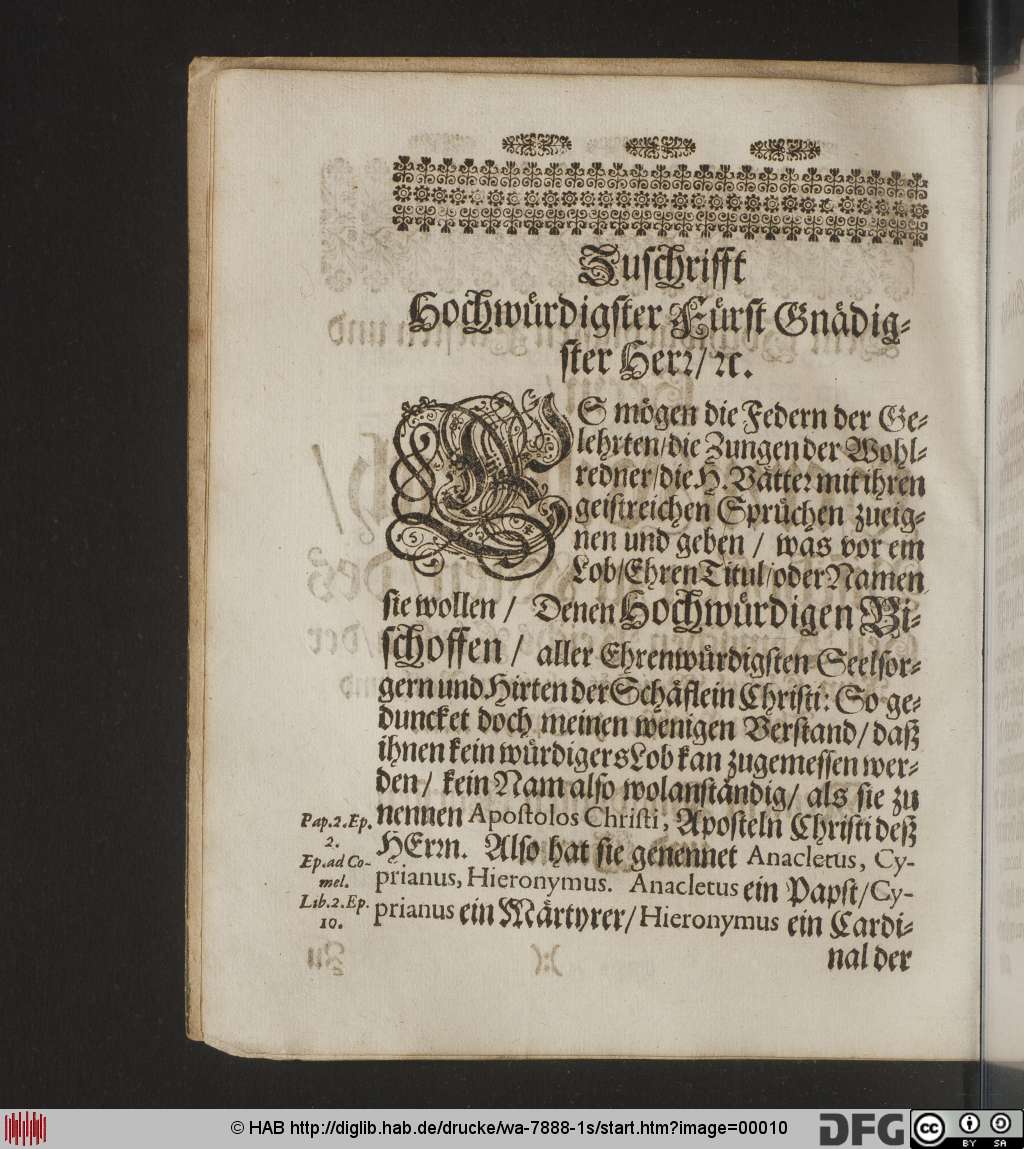 Zuschrifft
Hochwürdigster Fürst Gnädig-
ster Herr/ ꝛc.
ES mögen die Federn der Ge-
lehrten/die Zungen der Wohl-
redner/die H. Vätter mit ihren
geistreichen Sprüchen zueig-
nen und geben / was vor ein
Lob/Ehren Titul/oder Namen
sie wollen / Denen Hochwürdigen Bi-
schoffen / aller Ehrenwürdigsten Seelsor-
gern und Hirten der Schäflein Christi: So ge-
duncket doch meinen wenigen Verstand/ daß
ihnen kein würdigers Lob kan zugemessen wer-
den/ kein Nam also wolanständig/ als sie zu
nennen Apostolos Christi, Aposteln Christi deß
HErrn. Also hat sie genennet Anacletus, Cy-
prianus, Hieronymus. Anacletus ein Papst/Cy-
prianus ein Märtyrer/Hieronymus ein Cardi-
nal der
Pap.2.Ep.
2.
Ep.ad Co-
mel.
Lib.2.Ep.
10.
© HAB http://diglib.hab.de/drucke/wa-7888-1s/start.htm?image=00010
DFG
cc
BY SA